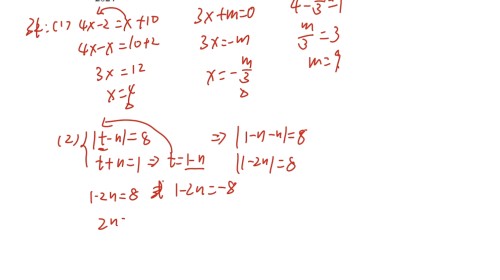 解:(1) 4x-2=x+10
4x-x=10+2
3x=12
x=4
3x+m=0
3x=-m
x=-m/3
4-m/3=1
m/3=3
m=9
(2) { |t-n|=8
t+n=1 ⇒ t=1-n
⇒ |1-n-n|=8
|1-2n|=8
1-2n=8 或 1-2n=-8
2n=